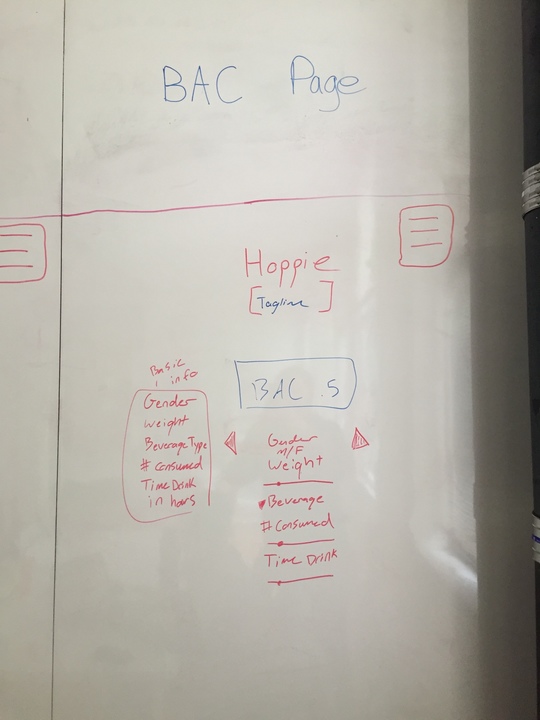 BAC Page
Hoppie
[Tagline]
Basic
info
Gender
Weight
Beverage Type
# Consumed
Time Drink
in hours
BAC .5
Gender
M/F
Weight
Beverage
# Consumed
Time Drink